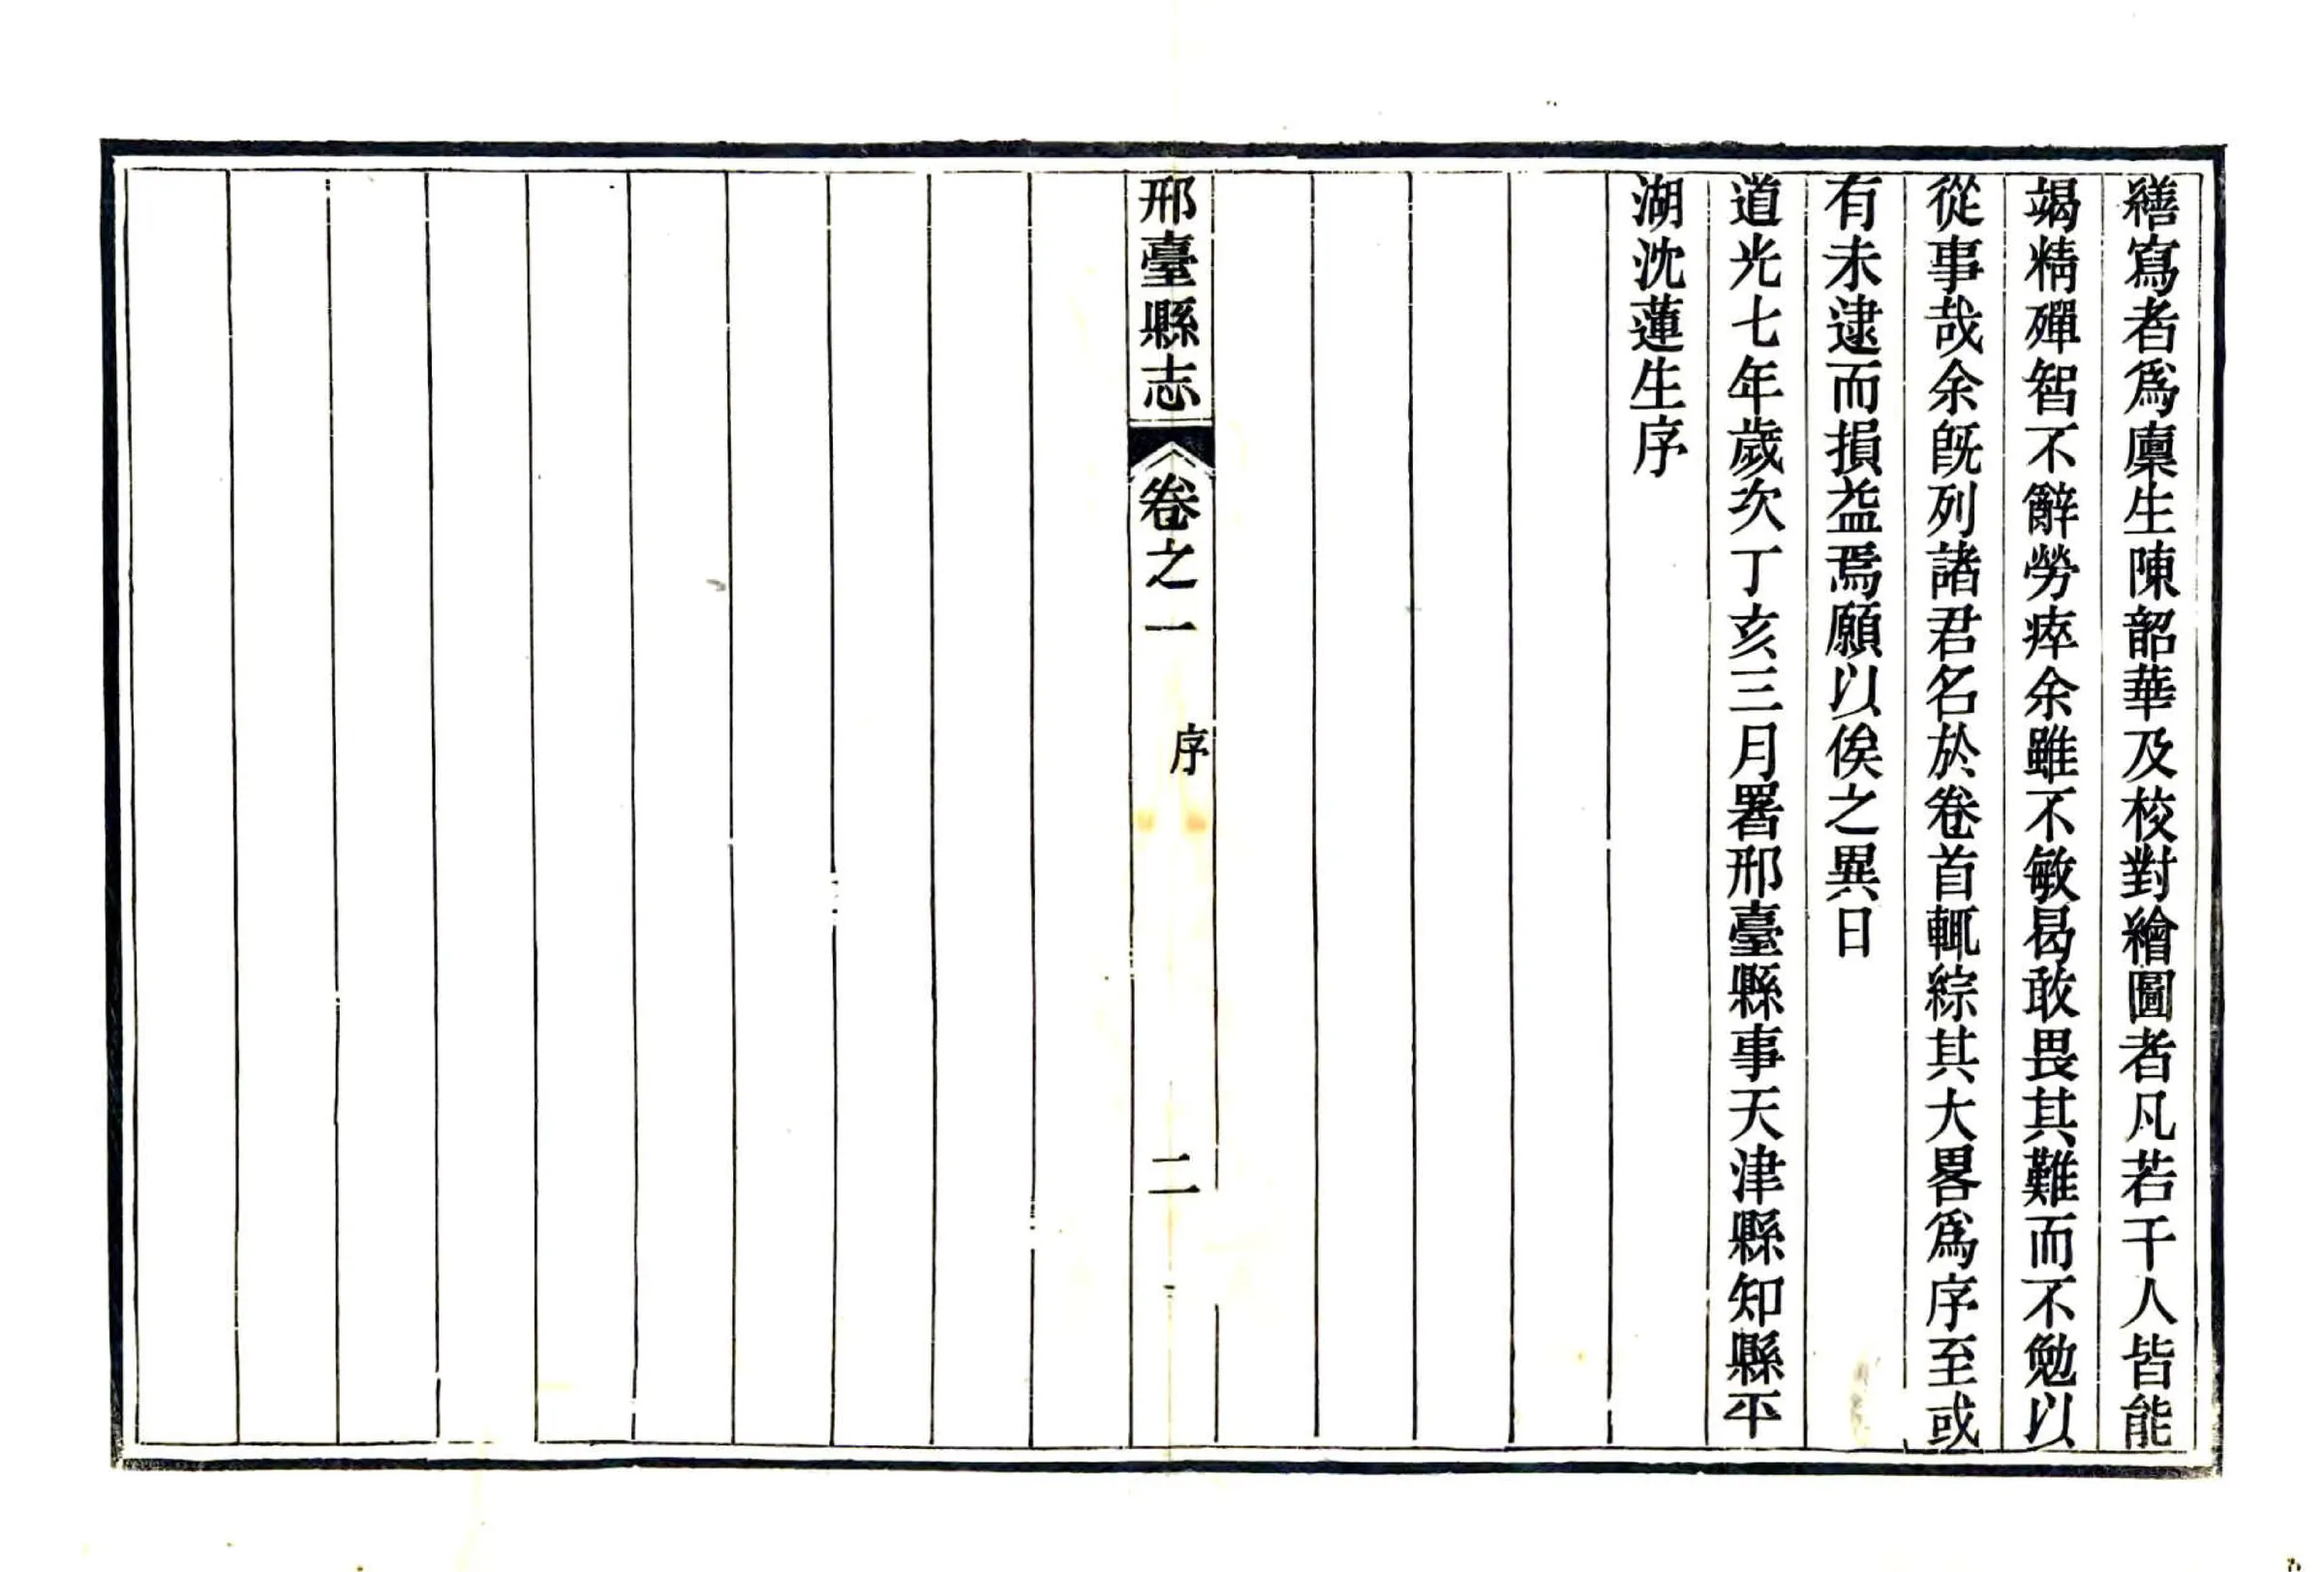 繕寫者爲廩生陳韶華及校對繪圖者凡若干人皆能
竭精殫智不辭勞瘁余雖不敏曷敢畏其難而不勉以
從事哉余旣列諸君名於卷首輒綜其大畧爲序至或
有未逮而損益焉願以俟之異日
道光七年歲次丁亥三月署邢臺縣事天津縣知縣平
湖沈蓮生序
邢臺縣志
卷之一
序
二